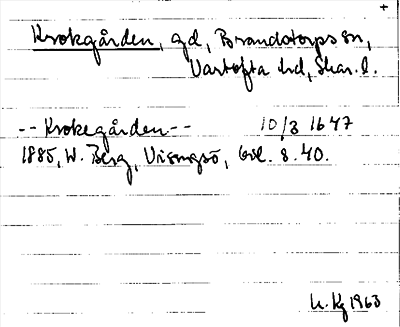 +
Krokgården, gd, Brandstorps sn,
Vartofta hd, Skar. l.
-- Krokegården -- 10/3 1647
1885, W. Berg, Visingsö, bil. s. 40.
1963